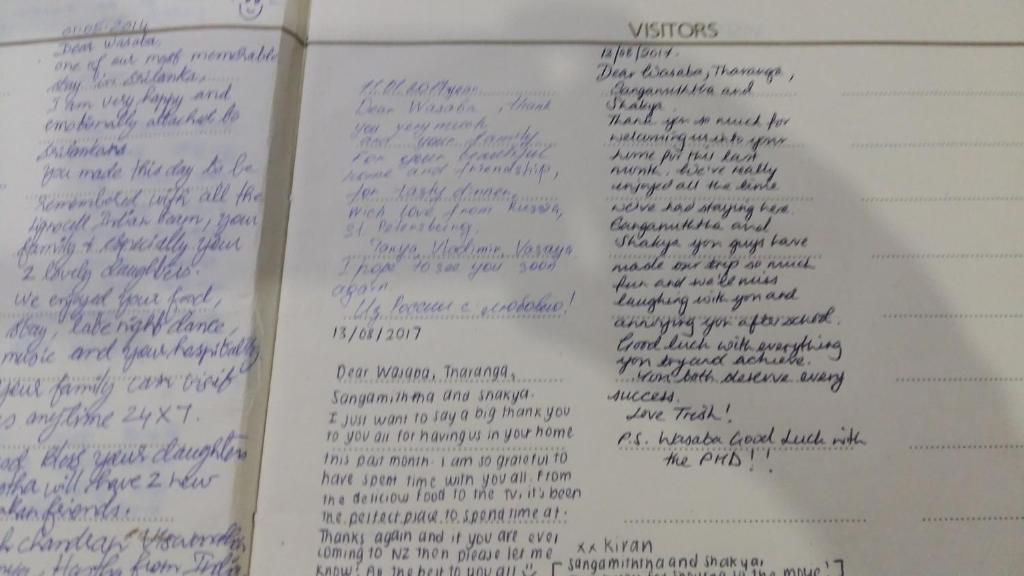 01.05.2014
Dear Wasaba,
one of our most memorable
stay in Srilanka,
I am very happy and
emotionally attached to
Srilankans
you made this day to be
remembered with all the
your
family & especially your
2 lovely daughters.
we enjoyed your food,
stay, late night dance,
music and your hospitality
your family can visit
us anytime 24x7.
God bless your daughters
will have 2 new
friends.
from India
VISITORS
11.01.2017 year.
Dear Wasaba, thank
you very much
and your family
for your beautiful
home and friendship,
for tasty dinner,
with love from Russia,
St Petersburg.
Tanya, Vladimir,
I hope to see you soon
again
Из России с любовью!
13/08/2017
Dear Wasaba, Tharanga,
Sangamiththa and shakya.
I just want to say a big thank you
to you all for having us in your home
this past month. I am so grateful to
have spent time with you all. From
the delicious food to the TV, it's been
the perfect place to spend time at.
Thanks again and if you are ever
coming to NZ then please let me
know! All the best to you all
xx Kiran
12/08/2017.
Dear Wasaba, Tharanga,
Sangamiththa and
Shakya.
Thank you so much for
welcoming us into your
home for this last
month. We've really
enjoyed all the time
we've had staying here.
Sangamiththa and
Shakya you guys have
made our trip so much
fun and we'll miss
laughing with you and
annoying you after school.
Good luck with everything
you try and achieve.
You both deserve every
success.
Love Trish!
P.S. Wasaba Good Luck with
the PHD!!
Sangamiththa and shakya,
in the move!